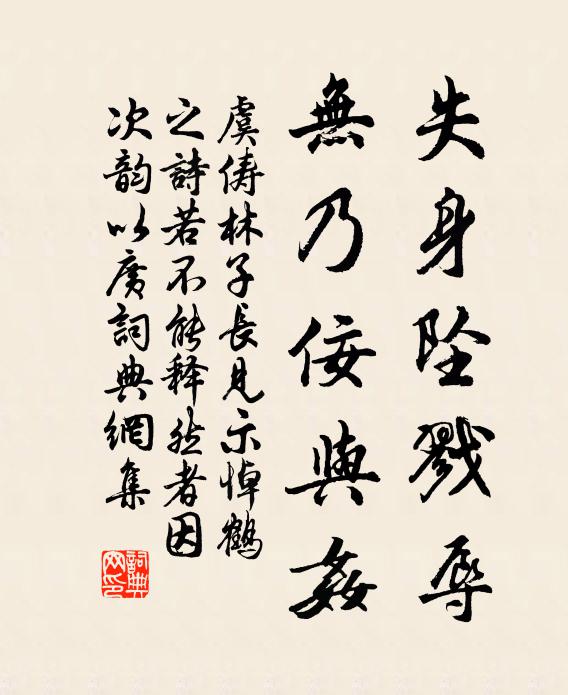 失身墜戮辱
無乃佞與姦
虞俦林子長見示悼鶴
之詩若不能释然者因
次韵以廣詞典網集
詞典
网印